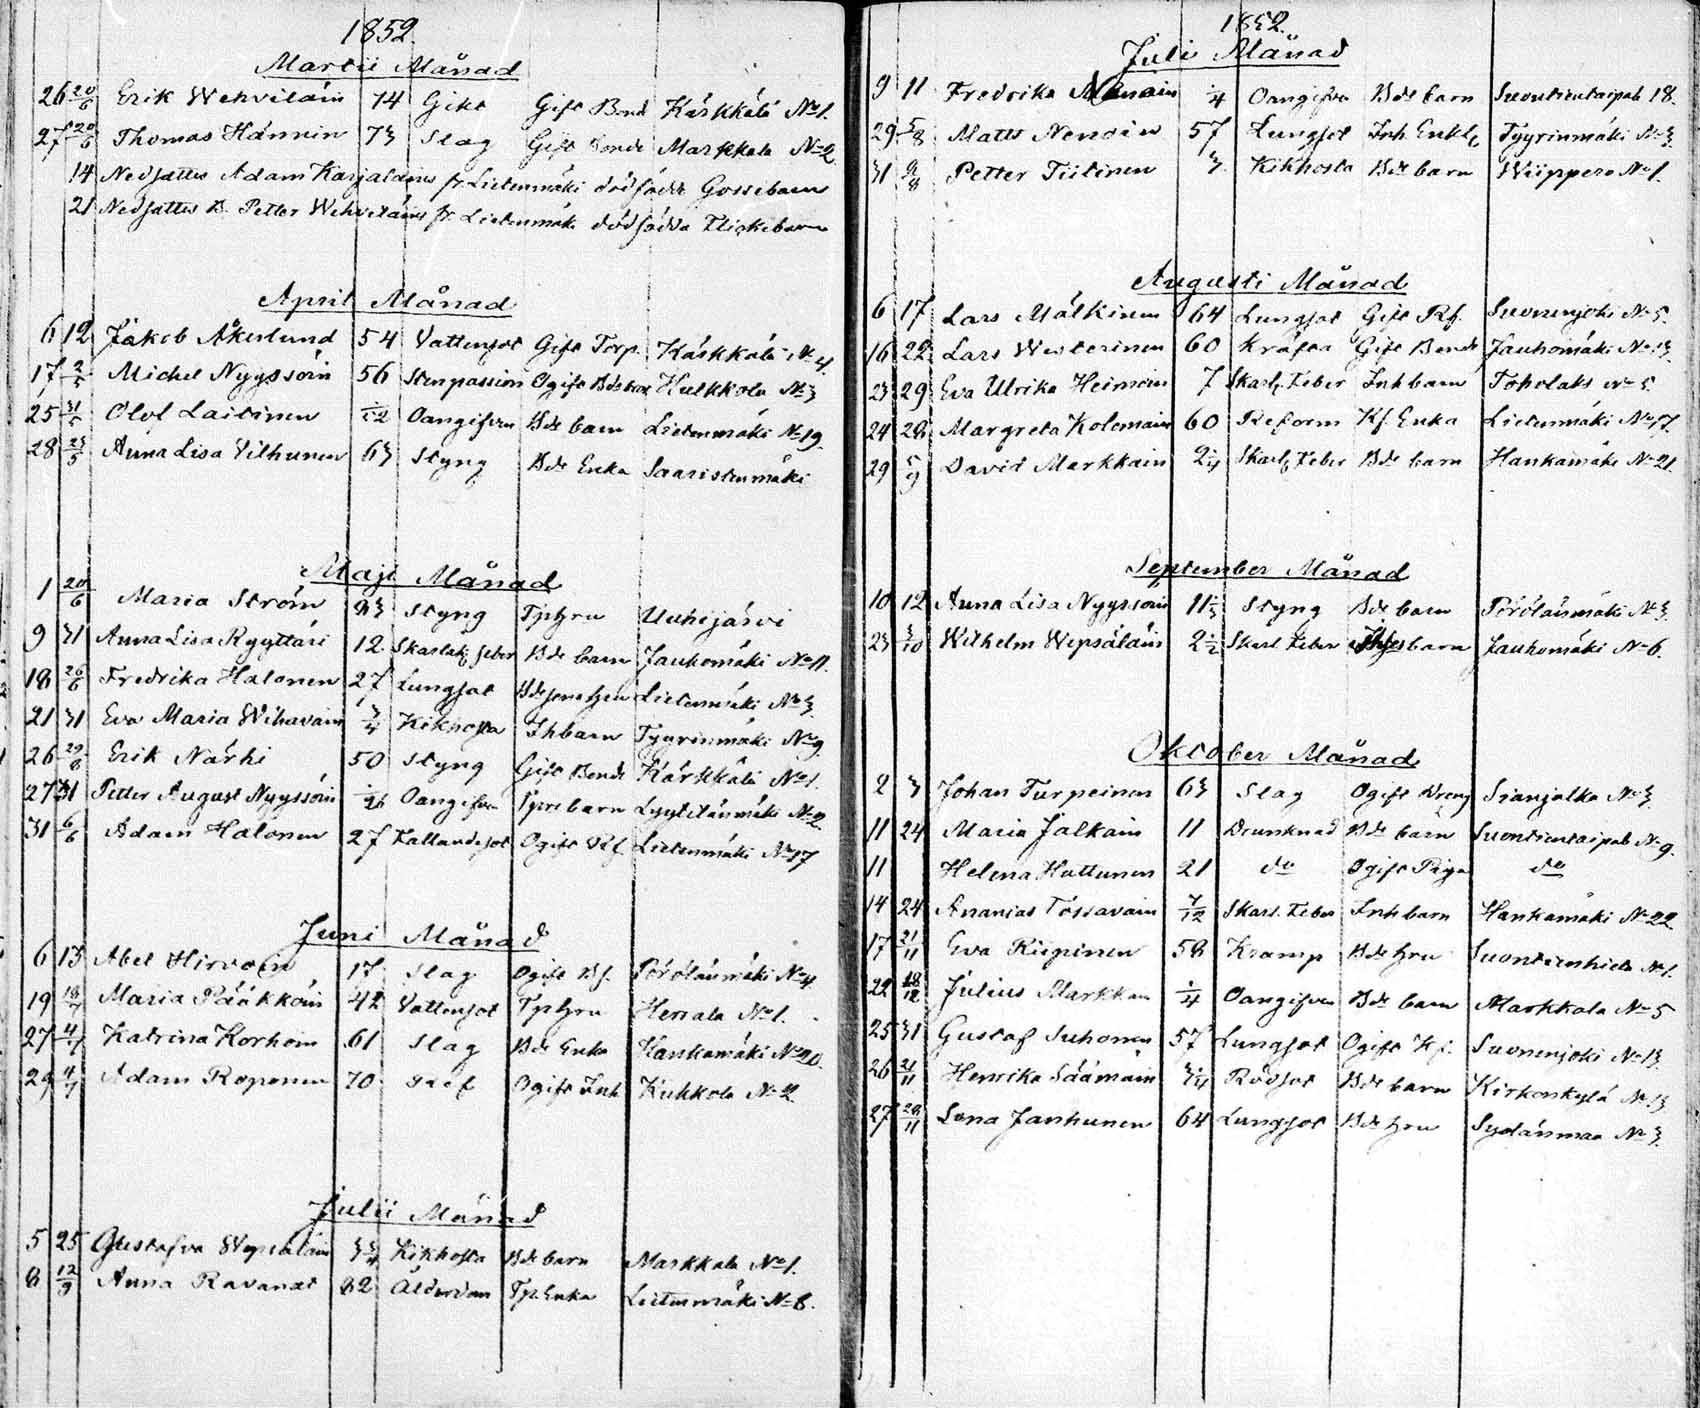 1852.
Martii Månad
26 20/6 Erik Wehviläin 74 Gikt Gift Bond Kärkkälä No 1.
27 20/6 Thomas Hännin 73 Slag Gift Bonde Markkala No 2
14 Nedsattes Adam Karjalains fr Lietenmäki dödfödda Gossebarn
21 Nedsattes B. Petter Wehviläins fr Lietenmäki dödfödda Flickebarn
April Månad
6 12 Jakob Åkerlund 54 Vattusot Gift Torp. Kärkkälä No 4.
17 2/5 Michel Nyyssöin 56 Stenpassion Ogift Hulkkola No 3
25 31/5 Olof Laitinen 1/12 Oangifven Bde barn Lietenmäki No 19.
28 23/5 Anna Lisa Vilhunen 63 Styng Bde Enka Saaristenmäki
Maji Månad
1 20/6 Maria Ström 83 Styng Tphru Uuhijärvi
9 31 Anna Lisa Ryyttäri 12 Skarlak feber Bde barn Jauhomäki No 11.
18 26/6 Fredrika Halonen 27 Lungsot Lietenmäki No 3.
21 31 Eva Maria Wihavain 3/4 Kikhosta Ihbarn Tyyrinmäki No 9
26 Erik Närhi 50 Styng Gift Bonde Kärkkälä No 1.
27 31 Petter August Nyyssöin Oangifven barn Lyytilänmäki No 2.
31 6/6 Adam Halonen 27 Fallandesot Ogift Lietenmäki No 17
Juni Månad
6 13 Abel Hirvoin 17 Slag Ogift Bs. Pörölänmäki No 4.
19 18/7 Maria Pääkköin 42 Vattusot Tphru Herrala No 1.
27 4/7 Katrina Korhoin 61 Slag Bde Enka Hankamäki No 20.
29 4/7 Adam Roponen 70 Ref Ogift Inh Kukkola No 2
Julii Månad
5 25 Gustafva Wepsäläin 3 3/4 Kikhosta Bde barn Markkala No 1.
8 12/9 Anna Ravanat 82 Ålderdom Tp. Enka Lietenmäki No 8.
1852.
Juli Månad
9 11 Fredrika 1/4 Oangifven Bde barn Suontientaipale 18.
29 5/8 Matts Nenoin 57 Lungsot Inh. Enkl. Tyyrinmäki No 3.
31 8/8 Petter Tiitinen 3 Kikhosta Bde barn Wiippero No 1.
Augusti Månad
6 17 Lars Mälkinen 64 Lungsot Gift Rf. Suonenjoki No 5.
16 22 Lars Westerinen 60 Kräfta Gift Bonde Jauhomäki No 13.
23 29 Eva Ulrika Heimoin 7 Skarl. Feber Inhbarn Toholaks No 5
24 29 Margreta Kolemain 60 Reform Kf. Enka Lietenmäki No 17.
29 5/9 David Markkain 2 1/4 Skarl. Feber Bde barn Hankamäki No 21.
September Månad
10 12 Anna Lisa Nyyssöin 11 1/2 Styng Bde barn Pörölänmäki No 3.
23 3/10 Wilhelm Wepsäläin 2 1/2 Skarl. Feber barn Jauhomäki No 6.
Oktober Månad
2 3 Johan Turpeinen 63 Slag Ogift Dreng Sianjalka No 3.
11 24 Maria Jalkain 11 Drunknad Bde barn Suontientaipale No 9.
11 Helena Huttunen 21 do Ogift Piga do
14 24 Ananias Tossavain 7/12 Skarl. Feber Inhbarn Hankamäki No 22
17 21/11 Eva Riipinen 58 Kramp Bde hru Suontienhieta No 1.
22 Julius Markkan 1/4 Oangifven Bde barn Markkala No 5
25 31 Gustaf Suhonen 57 Lungsot Ogift Kf. Suonenjoki No 13.
26 21/11 Henrika Säämäin 3 1/4 Rödsot Bde barn Kirkonkylä No 13
27 28/11 Lena Janhunen 64 Lungsot Bde hru Sydänmaa No 3.